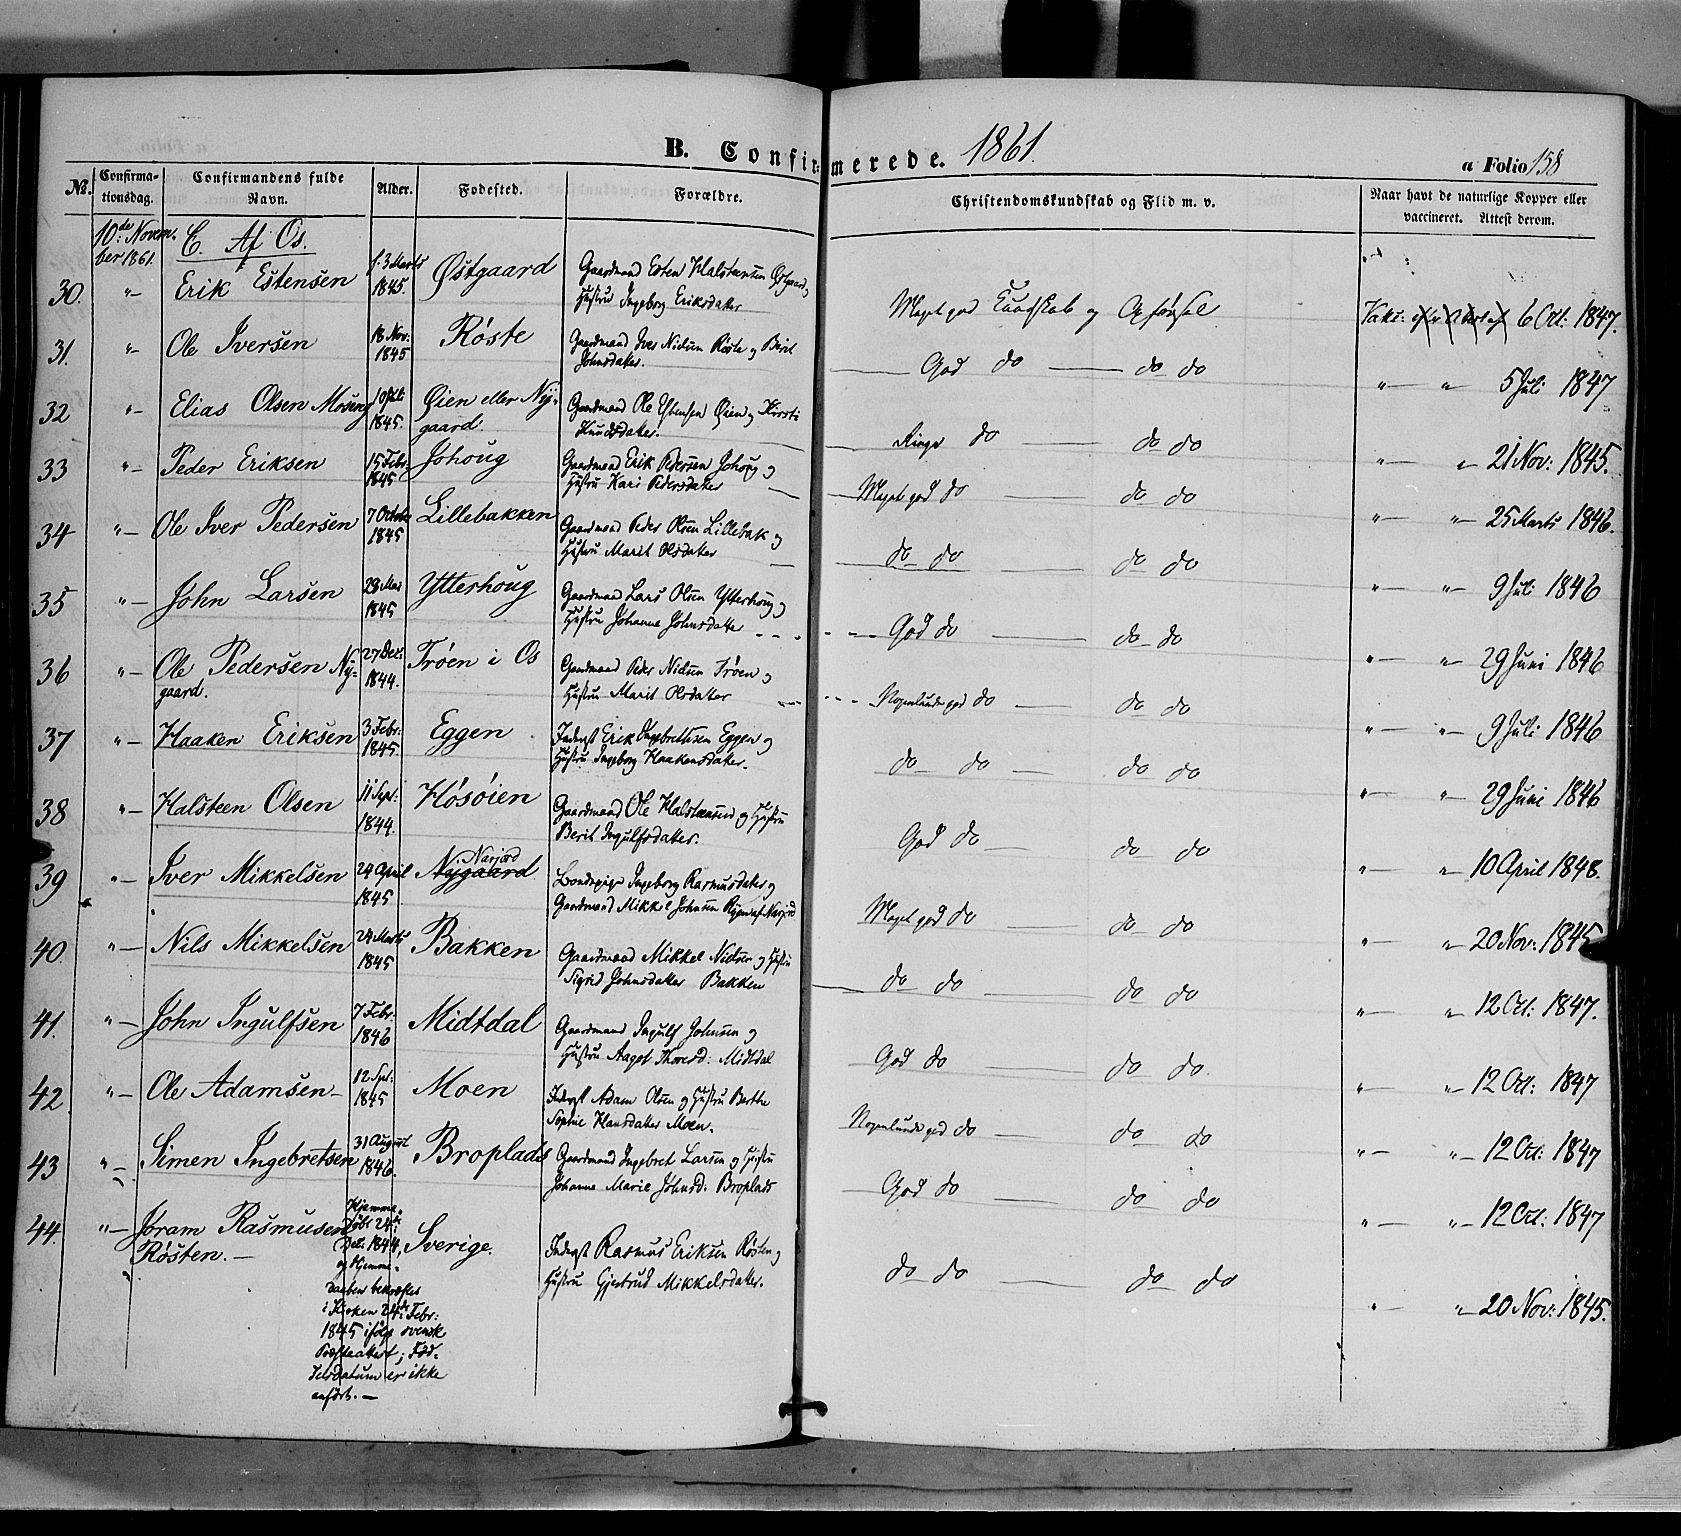 B. Confirmerede. 1861.
a Folio 158
No. Confirmationsdag. Confirmandens fulde Navn. Alder. Fødested. Forældre. Christendomskundskab og Flid m. v. Naar havt de naturlige Kopper eller vaccineret. Attest derom.
10de Novem- C. Af Os.
ber 1861.
30. "- Erik Estensen f. 3 Marts 1845. Østgaard Gaardmand Esten Halstensen Østgaard, Hustru Ingeborg Eriksdatter Meget god Kundskab og Opførsel Vakc: 6 Oct: 1847.
31. "- Ole Iversen 18 Nov: 1845 Røste Gaardmand Iver Nielsen Røste og Berit Johnsdatter. God do do do "- " 5 Juli 1847
32 "- Elias Olsen Moseng 1845. Øien eller Nygaard. Gaardmand Ole Estensen Øien og Kirsti Knudsdatter. Ringe do do do "- " 21 Nov: 1845.
33 "- Peder Eriksen 15 Febr: 1845 Johoug Gaardmand Erik Pedersen Johoug og Hustru Kari Pedersdatter Meget god do do do "- " 25 Marts 1846.
34 "- Ole Iver Pedersen 7 Octobr 1845 Lillebakken Gaardmand Peder Olsen Lillebak og Hustru Marit Olsdatter do do do do "- " 9 Juli 1846
35 "- John Larsen 28 Mai 1845 Ytterhoug Gaardmand Lars Olsen Ytterhoug og Hustru Johanne Johnsdatter God do do do "- " 29 Juni 1846
36 "- Ole Pedersen Nygaard. 27 Dec: 1844. Trøen i Os Gaardmand Peder Nielsen Trøen og Hustru Marit Olsdatter Nogenlunde god do do do "- " 9 Juli 1846
37 "- Haaken Eriksen 3 Febr: 1845. Eggen Inderst Erik Ingebretsen Eggen og Hustru Ingeborg Haakensdatter. do do do do "- " 29 Juni 1846
38 "- Halsteen Olsen 11 Sept: 1844. Høsøien Gaardmand Ole Halstensen og Hustru Berit Ingulfsdatter. God do do do "- " 10 April 1848.
39 "- Iver Mikkelsen 24 April 1845 Narjord Nygaard Bondepige Ingeborg Rasmusdatter og Gaardmand Mikkel Johnsen Ryen af Narjord Meget god do do do "- " 20 Nov: 1845
40 "- Nils Mikkelsen 24 Marts 1845 Bakken Gaardmand Mikkel Nielsen og Hustru Sigrid Johnsdatter Bakken do do do do "- " 12 Oct: 1847.
41. "- John Ingulfsen 7 Febr: 1846 Midtdal Gaardmand Ingulf Johnsen og Hustru Aagot Thoresd: Midtdal God do do do. "- " 12 Oct: 1847
42 "- Ole Adamsen- 12 Sept: 1845 Moen Inderst Adam Olsen og Hustru Berthe Sophie Hansdatter Moen. Nogenlunde god do do do "- " 12 Oct: 1847
43 "- Simen Ingebretsen 31 August 1846. Broplads Gaardmand Ingebret Larsen og Hustru Johanne Marie Johnsd: Broplads God do do do "- " 12 Oct: 1847
44. "- Joram Rasmusen Røsten.- Hjemmedøbt 24de Dec: 1844, og Hjemmedaaben bekræftes i Kirken 24de Febr: 1845 ifølge svensk Præsteattest; Fødselsdatum er ikke anført.- Sverige. Inderst Rasmus Eriksen Røsten og Hustru Gjertrud Mikkelsdatter. do do do do "- " 20 Nov: 1845.